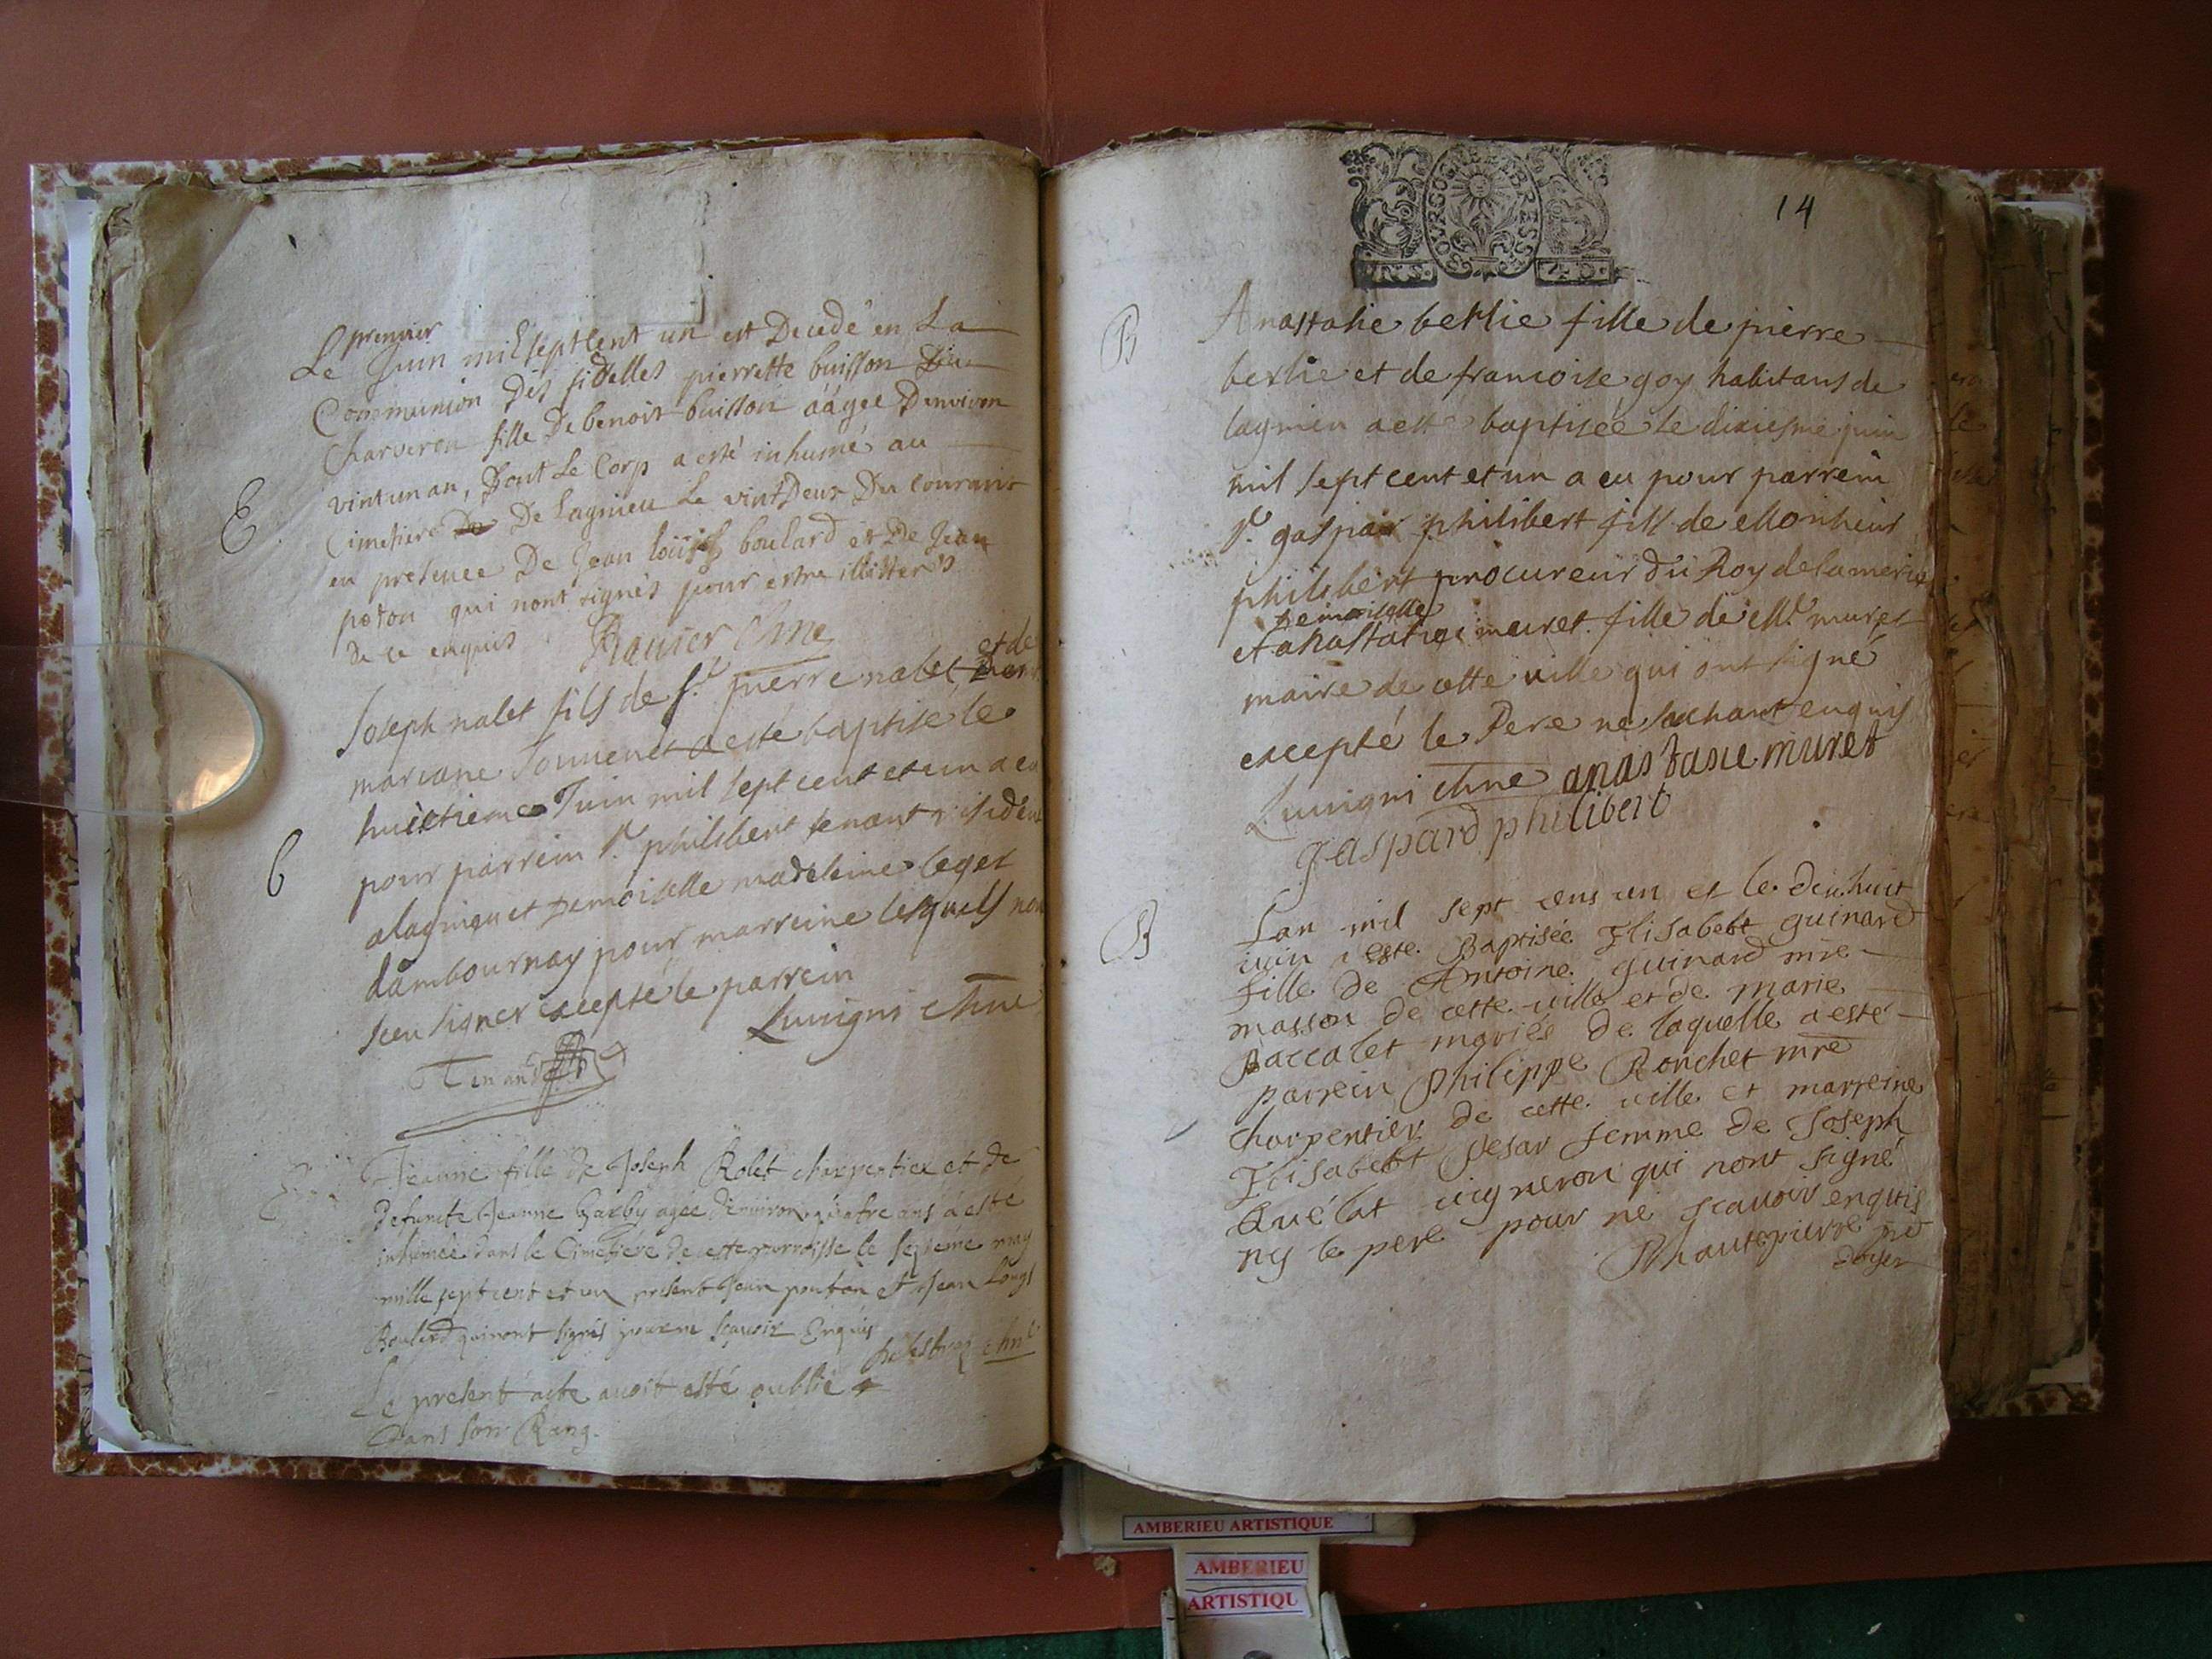 premier
Le Juin mil sept Cent un est Decedé en La
Communion Des fidelles pierrette buisson
Charveron fille De benoit buisson aágée Denviron
vint un an, Dont Le Corp a esté inhumé au
E
Cimetiere De Lagnieu Le vint Deux Du Courant
en presence De Jean loüis boulard et De Jean
poton qui nont signés pour estre illitterés
de ce enquis Ravier Chne
Joseph nalet fils de Sr. pierre nalet et de
mariane Jouvenet a esté baptisé le
huictieme Juin mil sept cent et un a eu
pour parrein Sr. philibert tenant résident
B
a lagnieu et Demoiselle madeleine leget
dambournay pour marreine lesquels nont
sceu signer excepté le parrein
Luvigni Chne
Tenand
Jeanne fille de Joseph Rolet charpentier et de
defuncte Jeanne Garby agée denviron quatre ans a esté
inhumée dans le Cimetiére de cette parroisse le septiéme may
mille sept cent et un present Jean pouton et Jean Louys
Boulard qui nont signés pour ne sçavoir Enquis
chne
Le present acte avoit esté oublié
Dans son Rang.
14
BOVRGOGNE ET BRESSE
4 D.
B
Anastasie berlie fille de pierre
berlie et de francoise goy habitans de
lagnieu a esté baptisée le dixiesme juin
mil sept cent et un a eu pour parrein
Sr. gaspar philibert fils de Monsieur
philibert procureur du Roy de la merie
Demoiselle
et anastasie muret fille de Mr. muret
maire de cette ville qui ont signé
excepté le Pere ne sachant enquis
Luvigni Chne anastasie muret
Gaspard philibert
B
Lan mil sept cens un et le dixhuit
iuin a esté Baptisée Elisabebt guinard
fille de Antoine guinard mre
masson de cette ville et de marie
Baccalet mariés de laquelle a esté
parrein Philippe Ronchet mre
Charpentier de cette ville et marreine
Elisabebt Pesar femme de Joseph
Quélat vigneron qui nont signé
ny le pere pour ne scavoir enquis
hautepierre pre
doyen
AMBERIEU ARTISTIQUE
AMBERIEU
ARTISTIQU